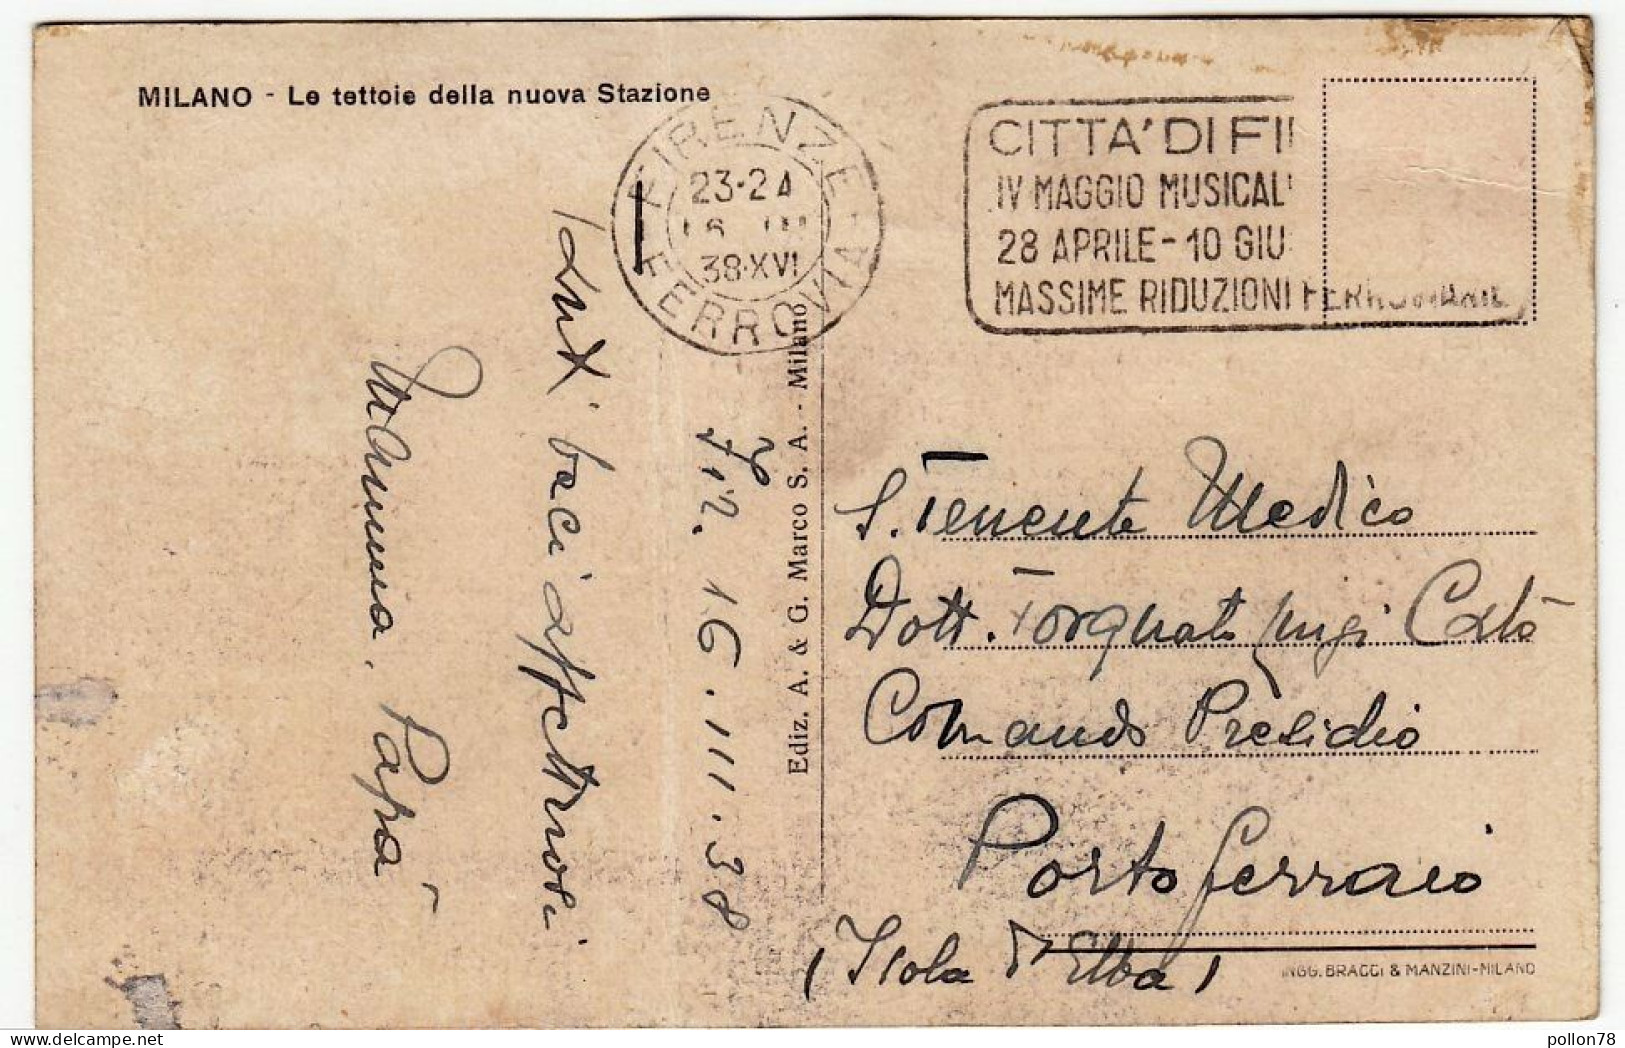 MILANO - Le tettoie della nuova Stazione
FIRENZE
FERROVIA
23-24
16 III
38·XVI
CITTA' DI FI
IV MAGGIO MUSICAL
28 APRILE - 10 GIU
MASSIME RIDUZIONI FERROVIARIE
Fir. 16.III.38
Tanti baci affettuosi
Mamma. Papà
Ediz. A. & G. Marco S. A. - Milano
S. Tenente Medico
Dott. Torquato
Comando Presidio
Porto ferraio
(Isola d'Elba)
INGG. BRACCI & MANZINI-MILANO
pollon78